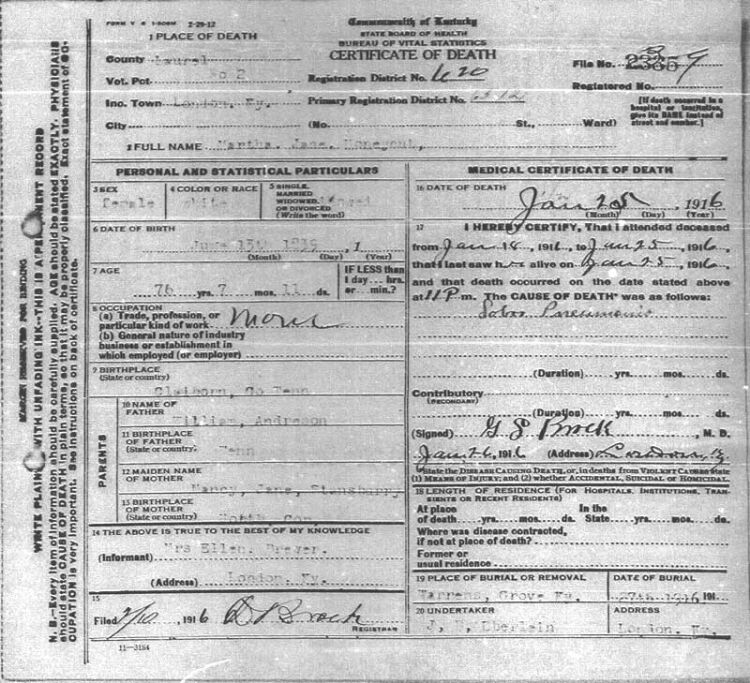 FORM V S 1-50BM 2-29-12
Commonwealth of Kentucky
STATE BOARD OF HEALTH
BUREAU OF VITAL STATISTICS
CERTIFICATE OF DEATH
1 PLACE OF DEATH
County Laurel
Vot. Pct No 2
Inc. Town London, Ky.
City
Registration District No. 620
Primary Registration District No.
(No. St., Ward)
File No. 9
Registered No.
[If death occurred in a hospital or institution, give its NAME instead of street and number.]
2 FULL NAME Martha, Jane, Honeycut,
PERSONAL AND STATISTICAL PARTICULARS
3 SEX
female
4 COLOR OR RACE
White
5 SINGLE, MARRIED WIDOWED, OR DIVORCED (Write the word)
6 DATE OF BIRTH
June 13th 1839, 1
(Month) (Day) (Year)
7 AGE
76 yrs. 7 mos. 11 ds.
IF LESS than 1 day hrs. or min.?
8 OCCUPATION
(a) Trade, profession, or particular kind of work None
(b) General nature of industry business or establishment in which employed (or employer)
9 BIRTHPLACE
(State or country)
Claiborn, Co Tenn
PARENTS
10 NAME OF FATHER
William, Anderson
11 BIRTHPLACE OF FATHER
(State or country) Tenn
12 MAIDEN NAME OF MOTHER
Nancy, Jane,
13 BIRTHPLACE OF MOTHER
(State or country) North Car.
14 THE ABOVE IS TRUE TO THE BEST OF MY KNOWLEDGE
(Informant) Mrs Ellen. Brewer.
(Address) London. Ky.
15
Filed 2/10, 1916 Brock
REGISTRAR
11-3184
MEDICAL CERTIFICATE OF DEATH
16 DATE OF DEATH
Jan 25, 1916
(Month) (Day) (Year)
17 I HEREBY CERTIFY, That I attended deceased
from Jan 18, 1916, to Jan 25, 1916,
that I last saw her alive on Jan 25, 1916,
and that death occurred on the date stated above
at 11 P m. The CAUSE OF DEATH* was as follows:
Lobar Pneumonia
(Duration) yrs. mos. ds.
Contributory
(SECONDARY)
(Duration) yrs. mos. ds.
(Signed) G S Brock, M. D.
Jan 26, 1916 (Address) London, Ky
*State the DISEASE CAUSING DEATH, or, in deaths from VIOLENT CAUSES state
(1) MEANS OF INJURY; and (2) whether ACCIDENTAL, SUICIDAL OR HOMICIDAL.
18 LENGTH OF RESIDENCE (FOR HOSPITALS, INSTITUTIONS, TRANSIENTS OR RECENT RESIDENTS)
At place of death yrs. mos. ds. In the State yrs. mos. ds.
Where was disease contracted,
if not at place of death?
Former or
usual residence
19 PLACE OF BURIAL OR REMOVAL
Warrens, Grove Ky.
DATE OF BURIAL
27th 1916 191
20 UNDERTAKER
Eberlein
ADDRESS
London, Ky.
MARGIN RESERVED FOR BINDING
WRITE PLAINLY WITH UNFADING INK—THIS IS A PERMANENT RECORD
N. B.—Every item of information should be carefully supplied. AGE should be stated EXACTLY. PHYSICIANS
should state CAUSE OF DEATH in plain terms, so that it may be properly classified. Exact statement of OC-
CUPATION is very important. See instructions on back of certificate.